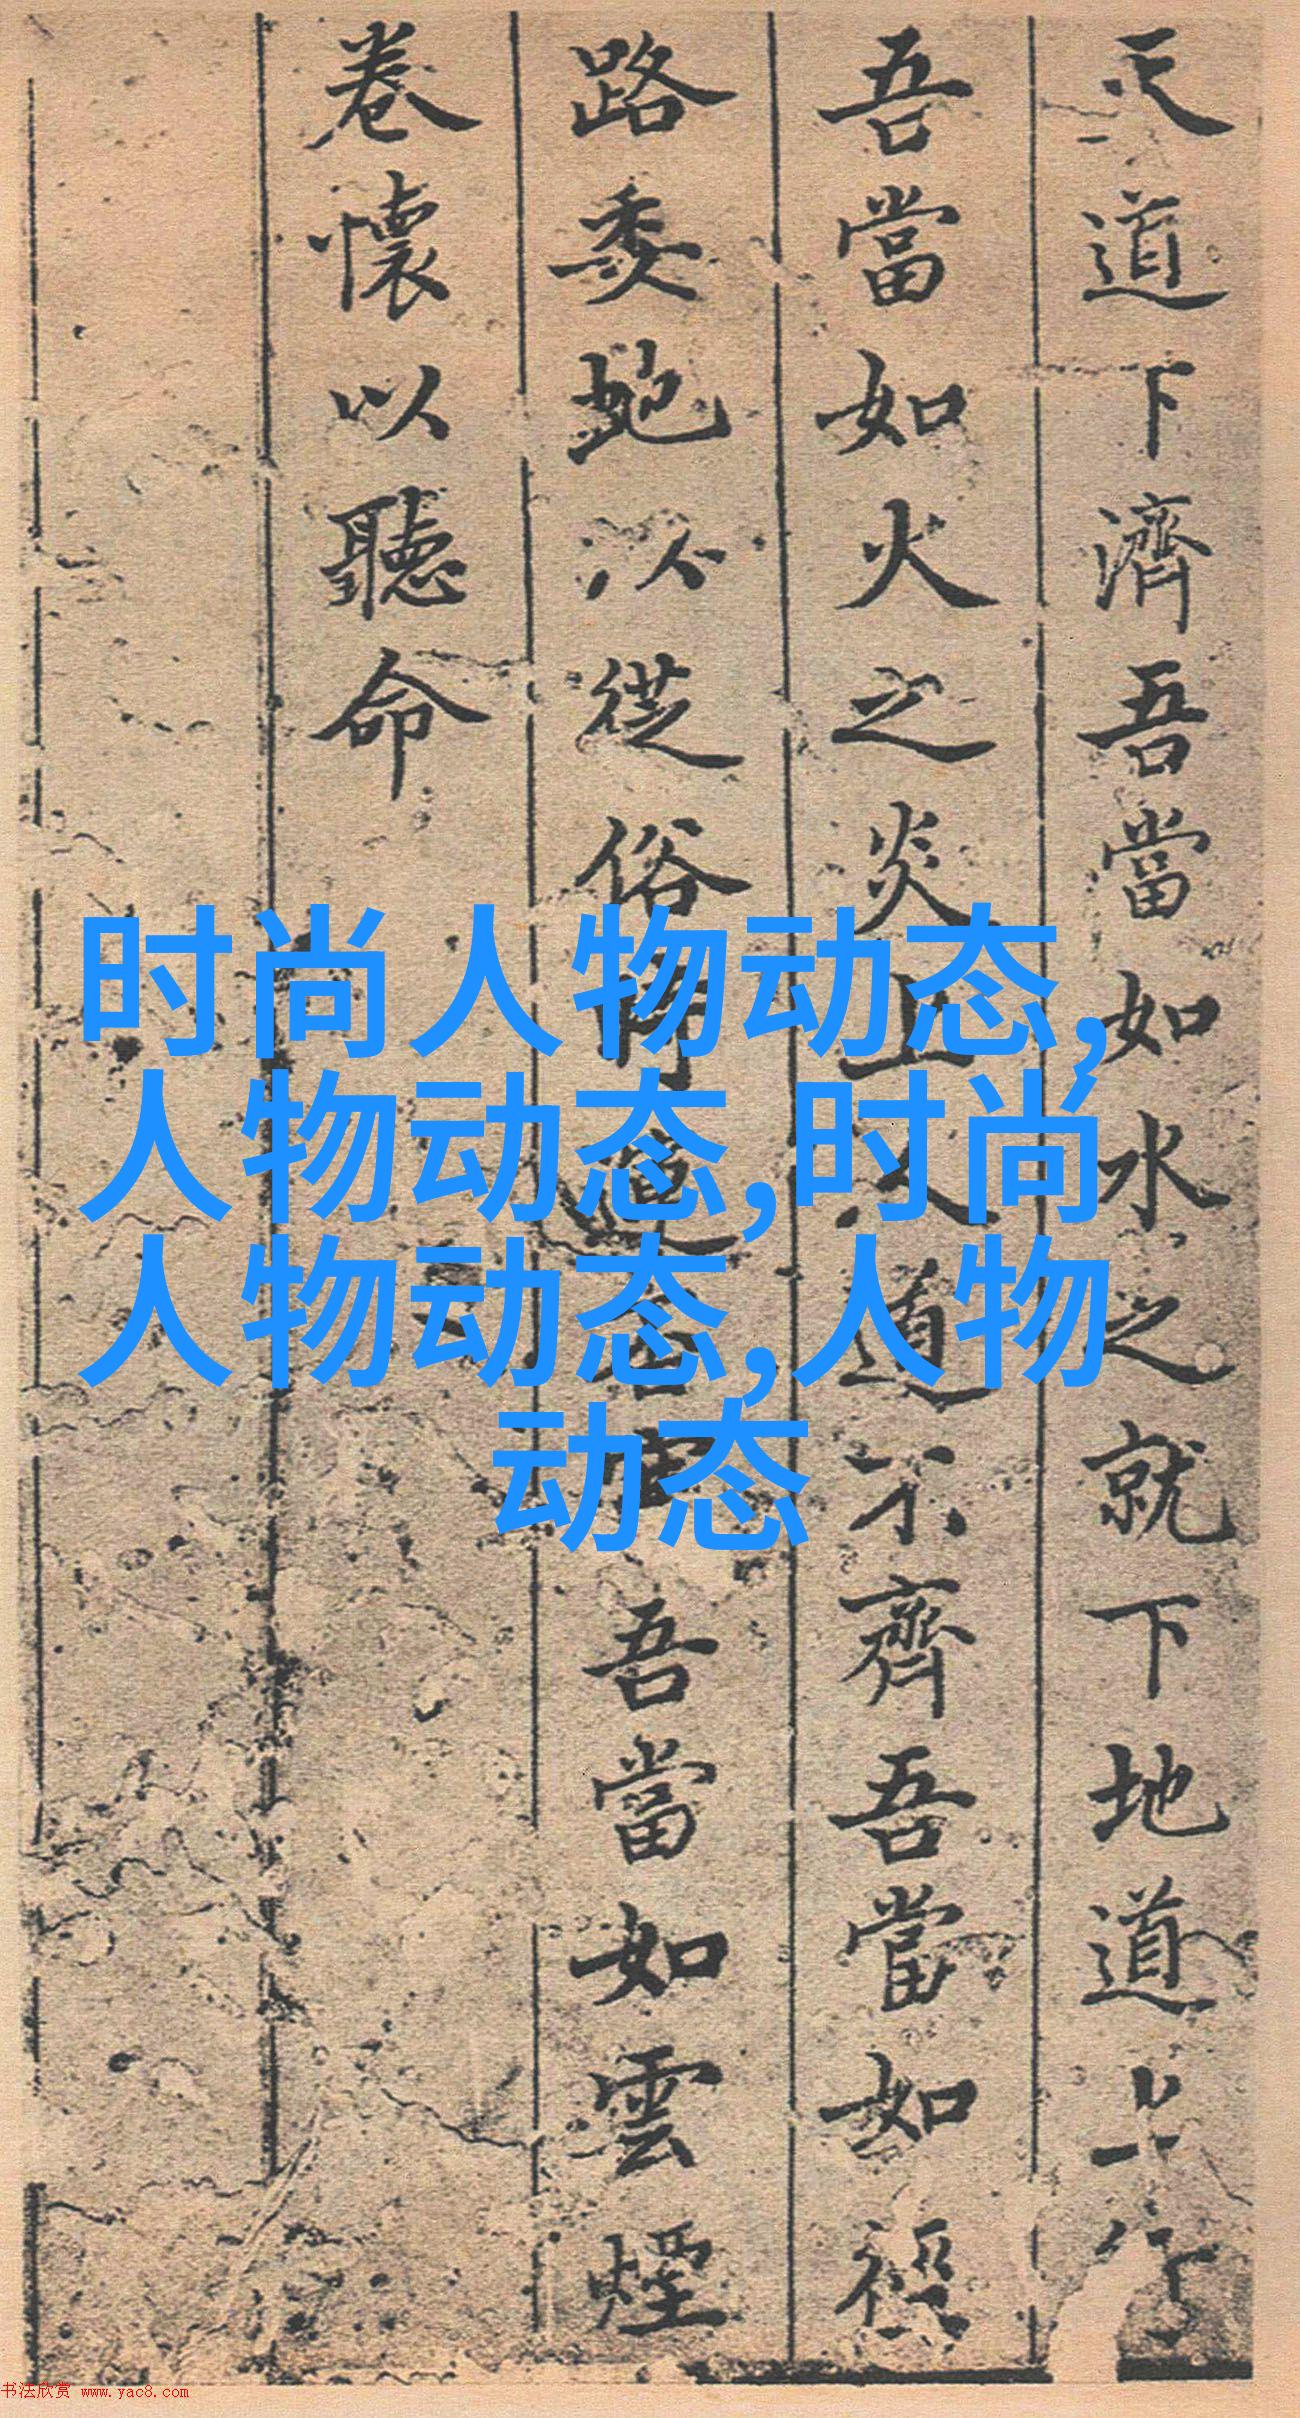 天道下濟吾當如水之就下地道上行
吾當如火之炎上人道不齊吾當如徑
路委蛇以從俗 道 吾當如雲煙
卷懷以聽命
时尚人物动态,
人物动态,时尚
人物动态,人物
动态
书法欣赏 www.yac8.com